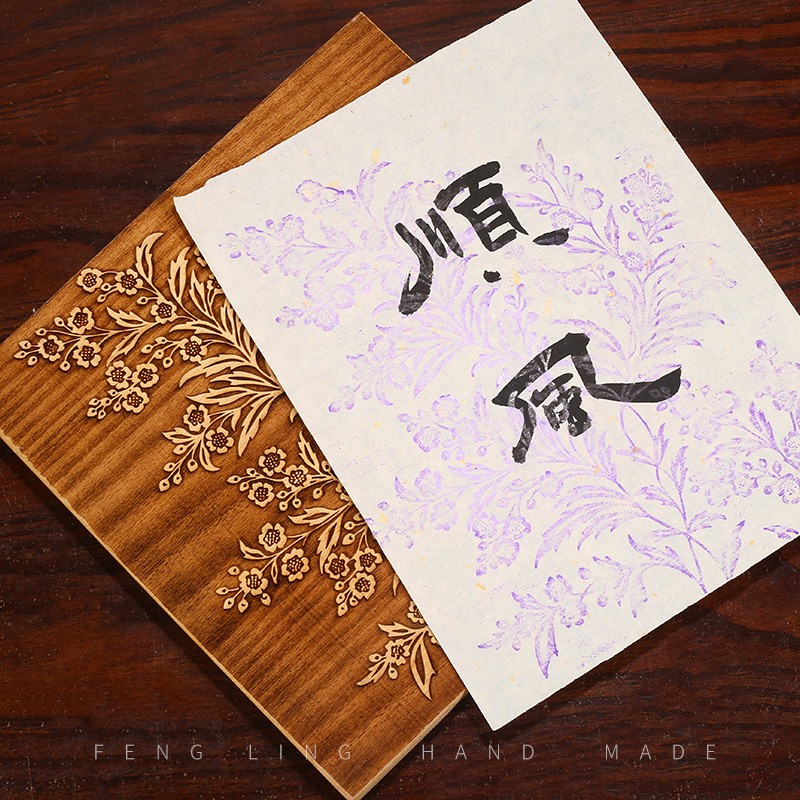 順
風
FENG LING HAND MADE